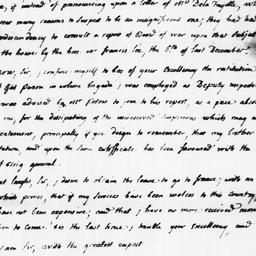 , if instead of pronouncing upon a letter of Mr Dela Tuyelle, wh
ver many reasons to suspect to be an insignificant one; they had had
condescendency to consult a report of Board of war upon that subject
the house by the hon. mr francis Lee, the 8th of last December.
now, Sir, I confine myself to beg of your Excellency the restitution
that person in whose brigade I was employed as Deputy inspector
was advised by mr Peters to join to his report, as a piece abso
me, for the dissipating of the undeserved suspicions which may a
treatment, principally if you deign to remember, that my brother
tation, and upon the same certificate has been favoured with the
t brig general.
Sir, I desire to obtain the leave to go to france; with an
which proves, that if my services have been useless to this country,
have not been expensive; and that I have no more received mon
tion to come. 'tis the last time I trouble your Excellency, and
I am Sir, with the greatest respect